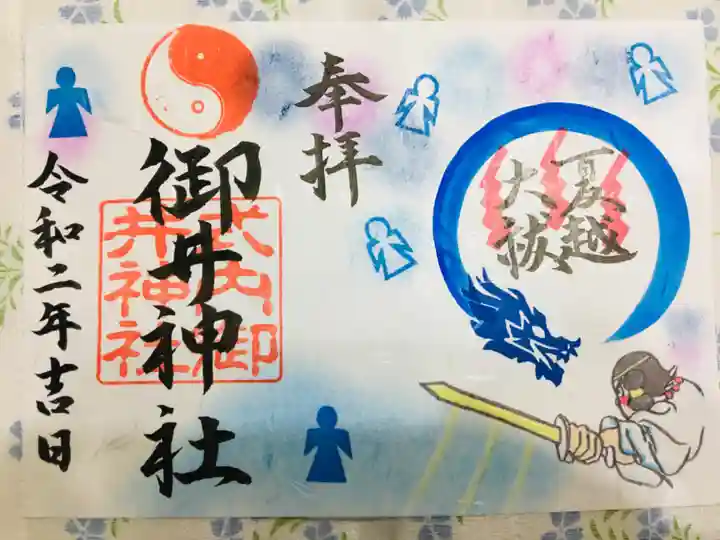 夏越
大祓
奉拝
御井神社
式内御
井神社
令和二年吉日